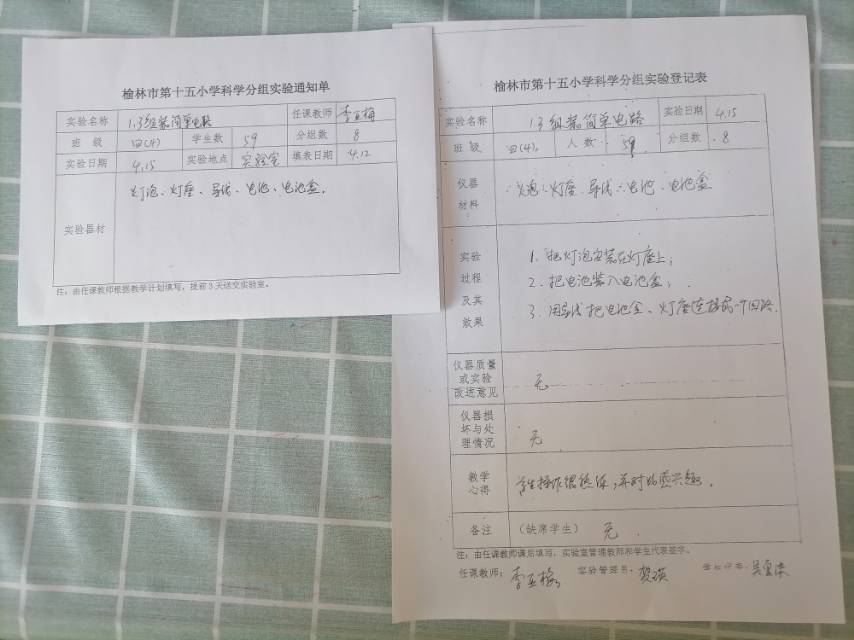 榆林市第十五小学科学分组实验通知单
实验名称 1.3组装简单电路 任课教师 李亚梅
班级 四(4) 学生数 59 分组数 8
实验日期 4.15 实验地点 实验室 填表日期 4.12
实验器材 灯泡、灯座、导线、电池、电池盒。
注:由任课教师根据教学计划填写,提前3天送交实验室。
榆林市第十五小学科学分组实验登记表
实验名称 1.3组装简单电路 实验日期 4.15
班级 四(4) 人数 59 分组数 8
仪器
材料
灯座、导线、电池、电池盒
实验
过程
及其
效果
1.把灯泡安装在灯座上;
2.把电池装入电池盒;
3.用导线把电池盒、灯座连接成一个回路.
仪器质量
或实验
改进意见
无
仪器损
坏与处
理情况
无
教学
心得
学生操作很熟练,并对此感兴趣.
备注 (缺席学生) 无
注:由任课教师课后填写,实验室管理教师和学生代表签字。
任课教师: 李亚梅 实验管理员: